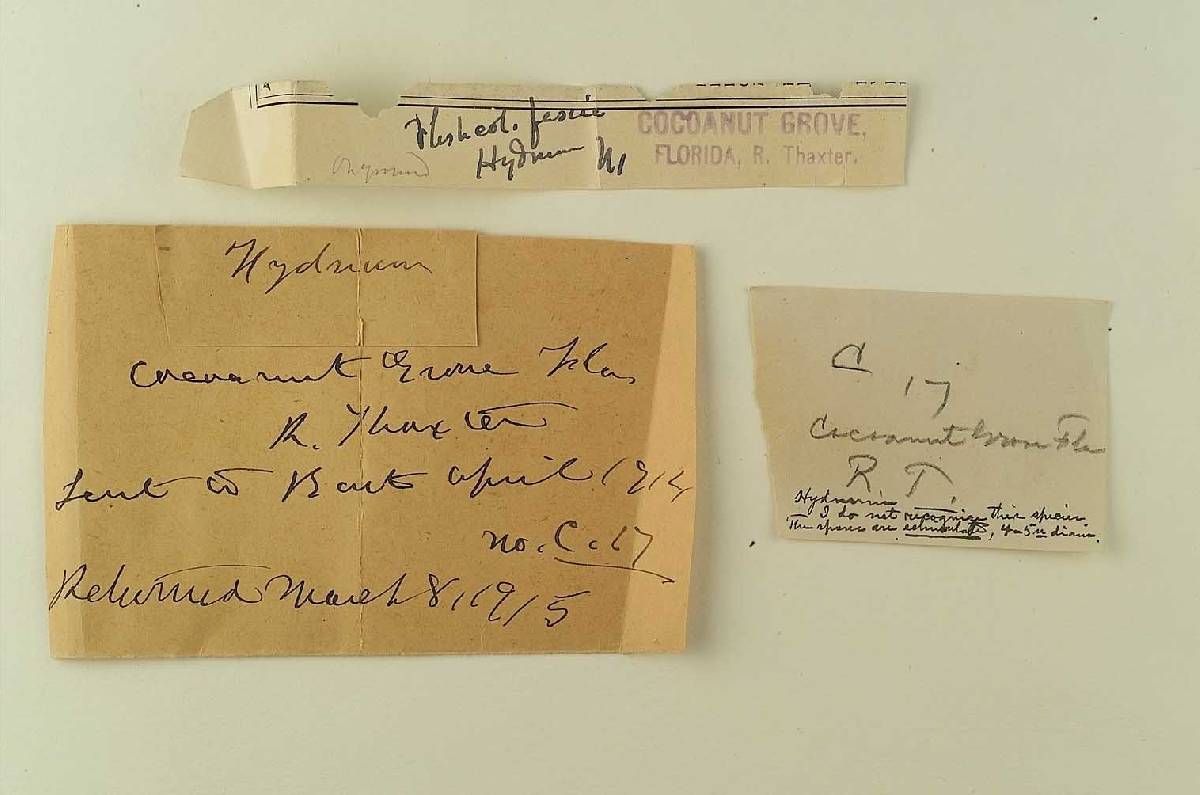 COCOANUT GROVE,
FLORIDA, R. Thaxter.
Hydnum
On ground
Hydnum
Cocoanut Grove Fla,
R. Thaxter
Sent to Burt April 1914
no. C. 17
Returned March 8, 1915
C
17
Cocoanut Grove Fla
R T.
Hydnum
I do not recognize this species.
The spores are echinulate, 4-5µ diam.